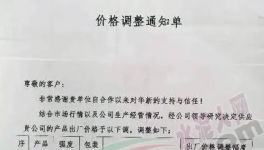 价格调整通知单
尊敬的客户：
非常感谢贵单位自合作以来对华新的支持与信任！
结合市场行情以及公司生产经营情况，经公司领导研究决定供应
贵公司的产品出厂价格予以下调，调整如下：
序 产品 强度 包装 出厂价格调整幅度